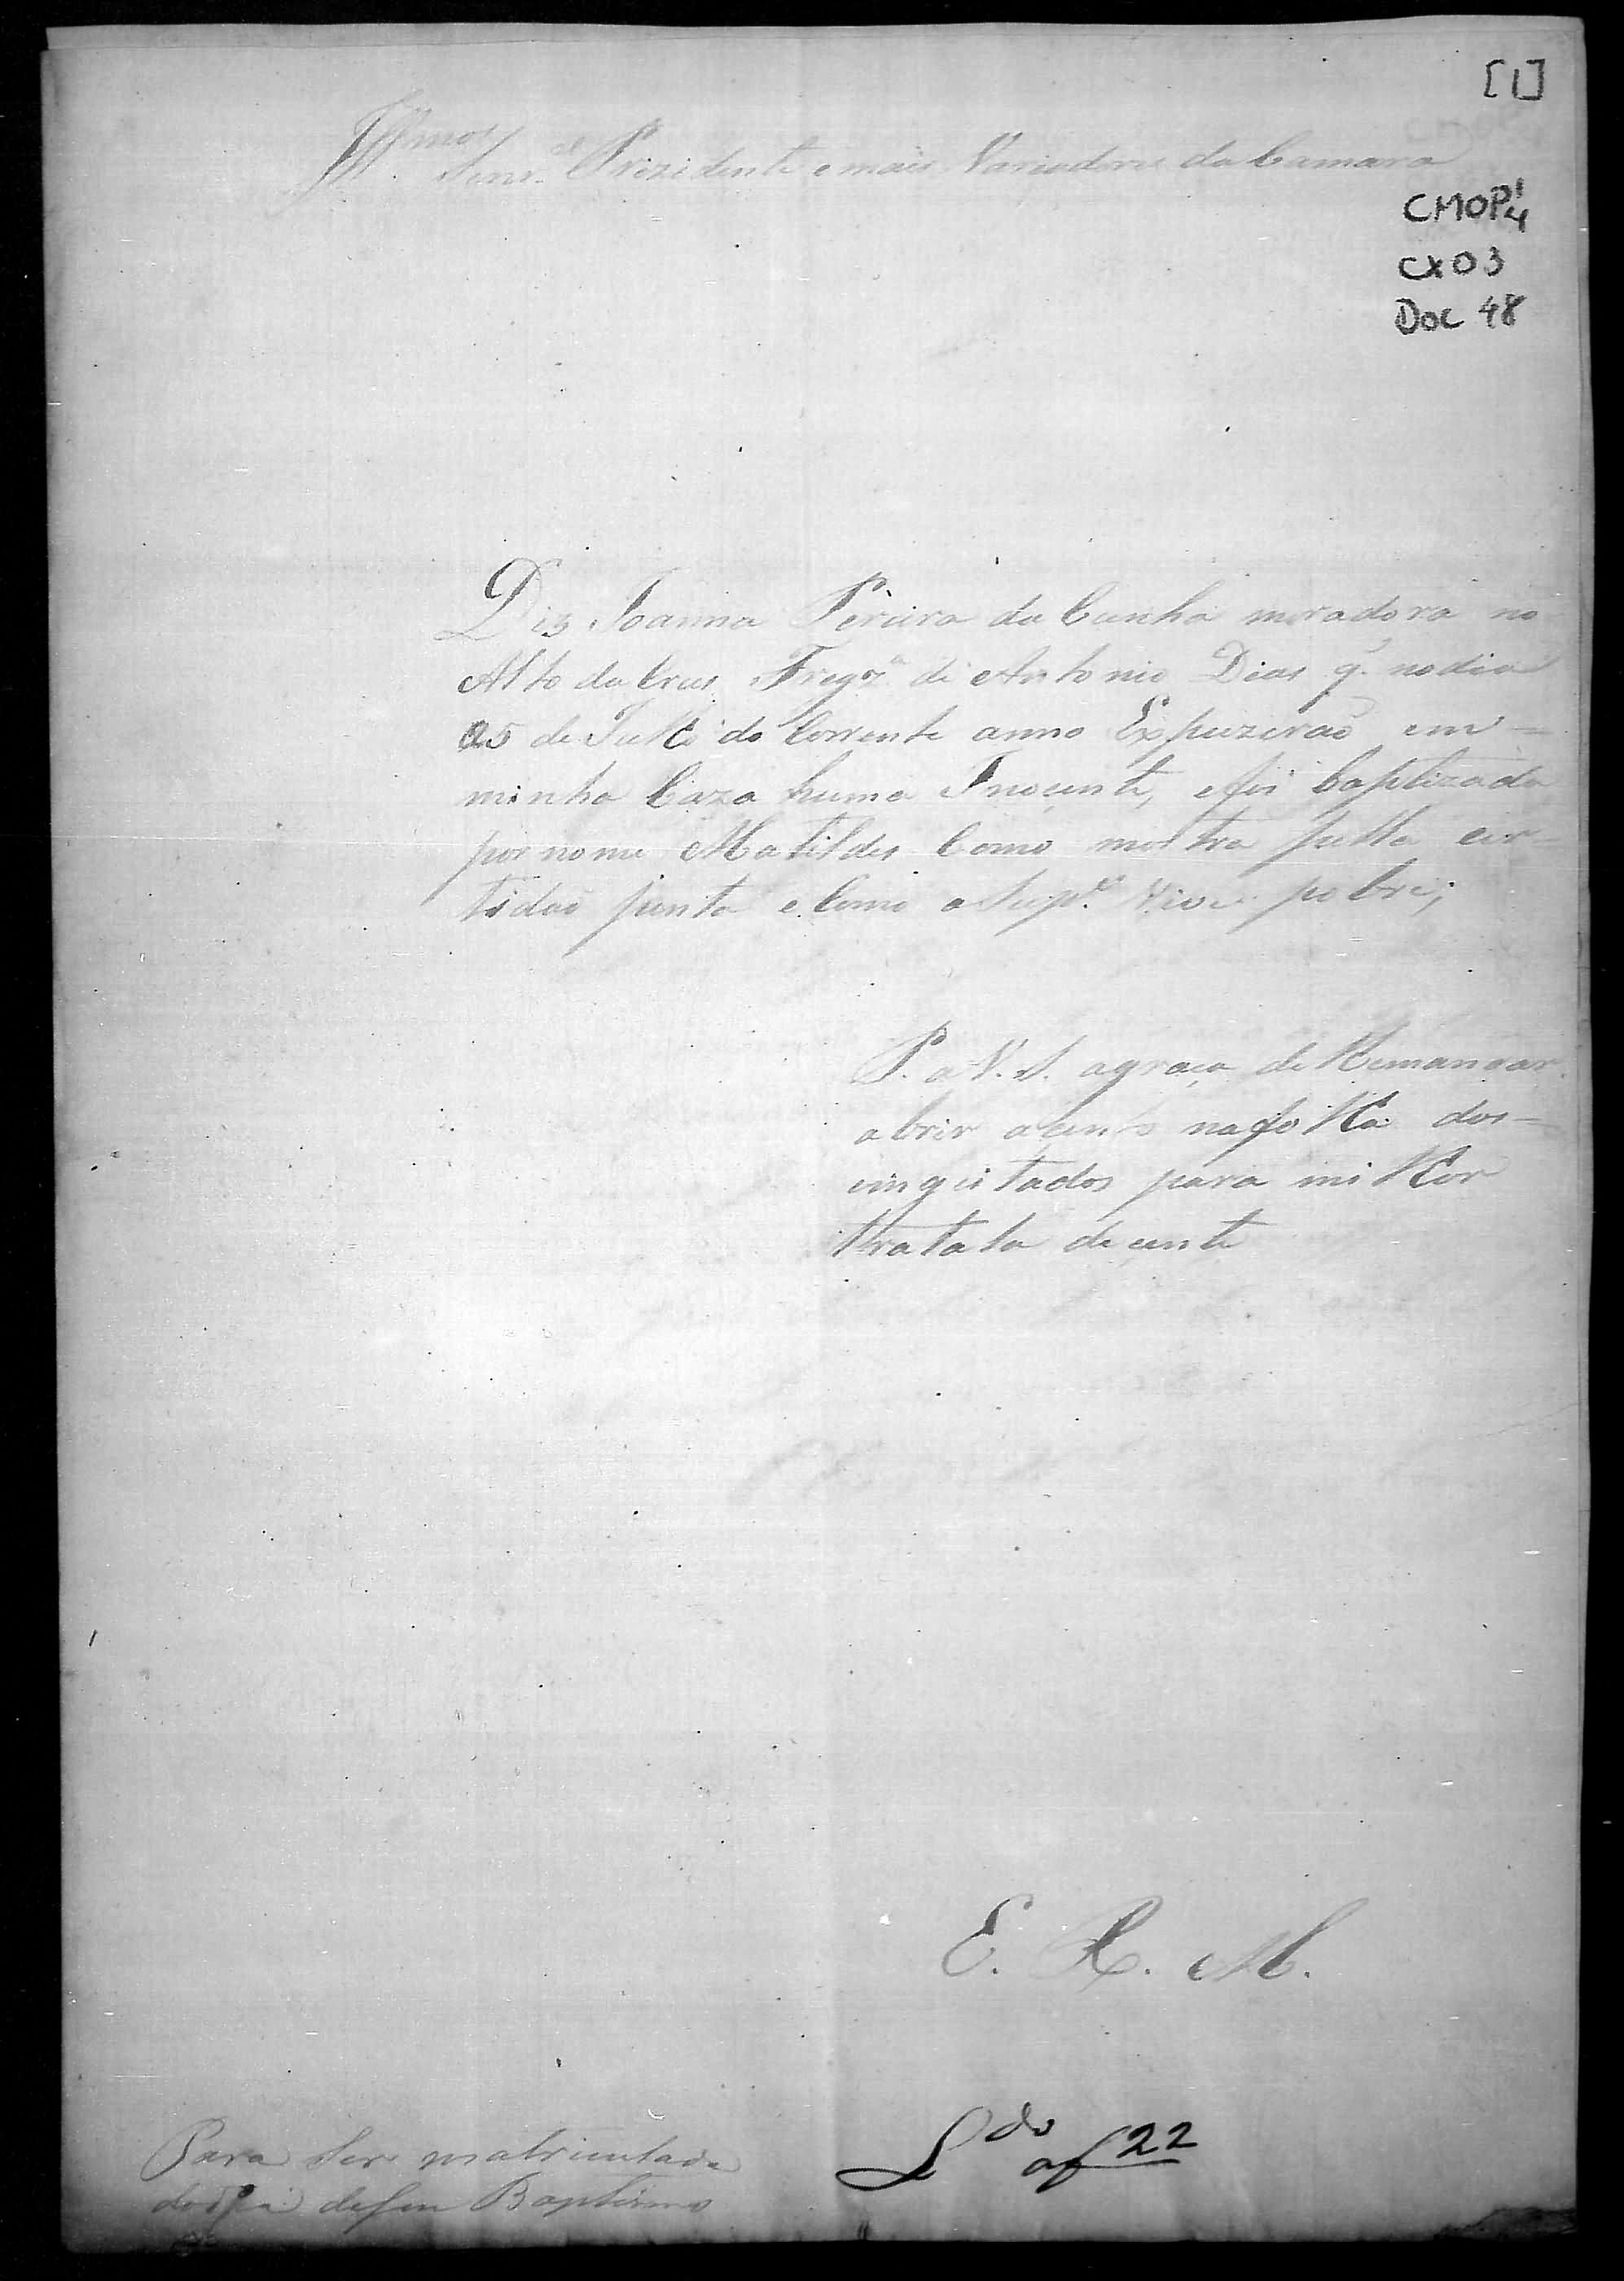 [1]
Illmos Senres Prezidente e mais Variadores da Camara
CMOP 1/4
CX 03
Doc 48
Diz Joanna Pereira da Cunha moradora no
Alto da Crus Fregza de Antonio Dias q. no dia
25 de Julho do Corrente anno Expuzerão em =
minha Caza huma Inocente, e foi baptizada
por nome Matildes Como mostra pella cer-
tidão junta e Como a Supe. Vive pobre;
P. a V. S. a graça de Remandar
abrir acento na folha dos =
emgeitados para milhor
tratala decente
E. R. M.
Ldo af 22
Para Ser matriculada
desde de seu Baptismo